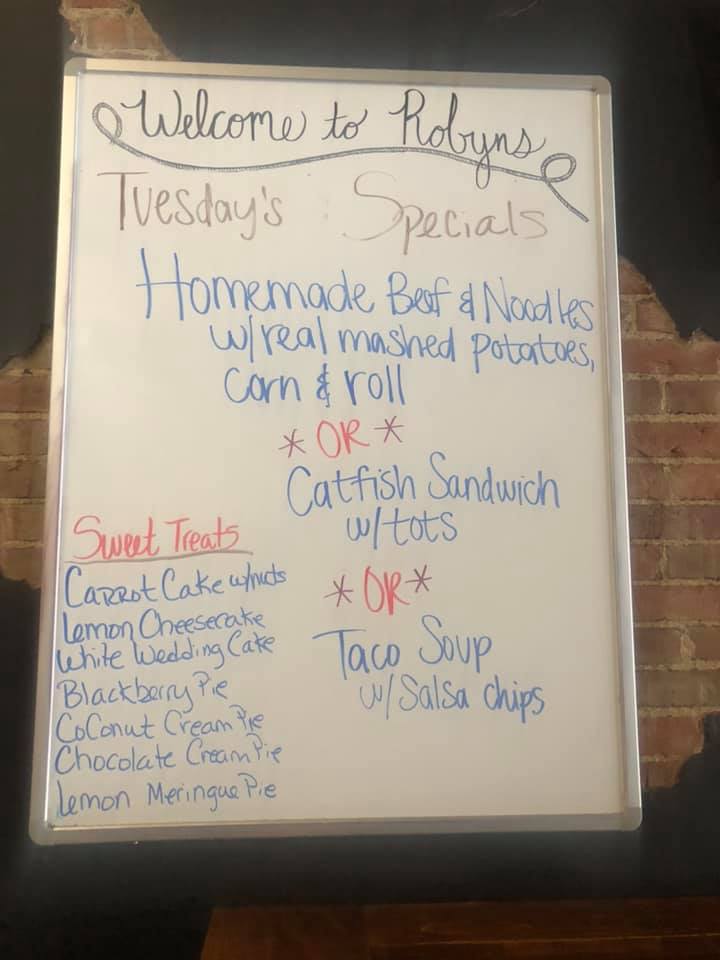 Welcome to Robyns
Tuesday's Specials
Homemade Beef & Noodles
w/real mashed potatoes,
Corn & roll
* OR *
Catfish Sandwich
w/tots
* OR *
Taco Soup
w/Salsa chips
Sweet Treats
Carrot Cake w/nuts
Lemon Cheesecake
White Wedding Cake
Blackberry Pie
CoConut Cream Pie
Chocolate Cream Pie
Lemon Meringue Pie